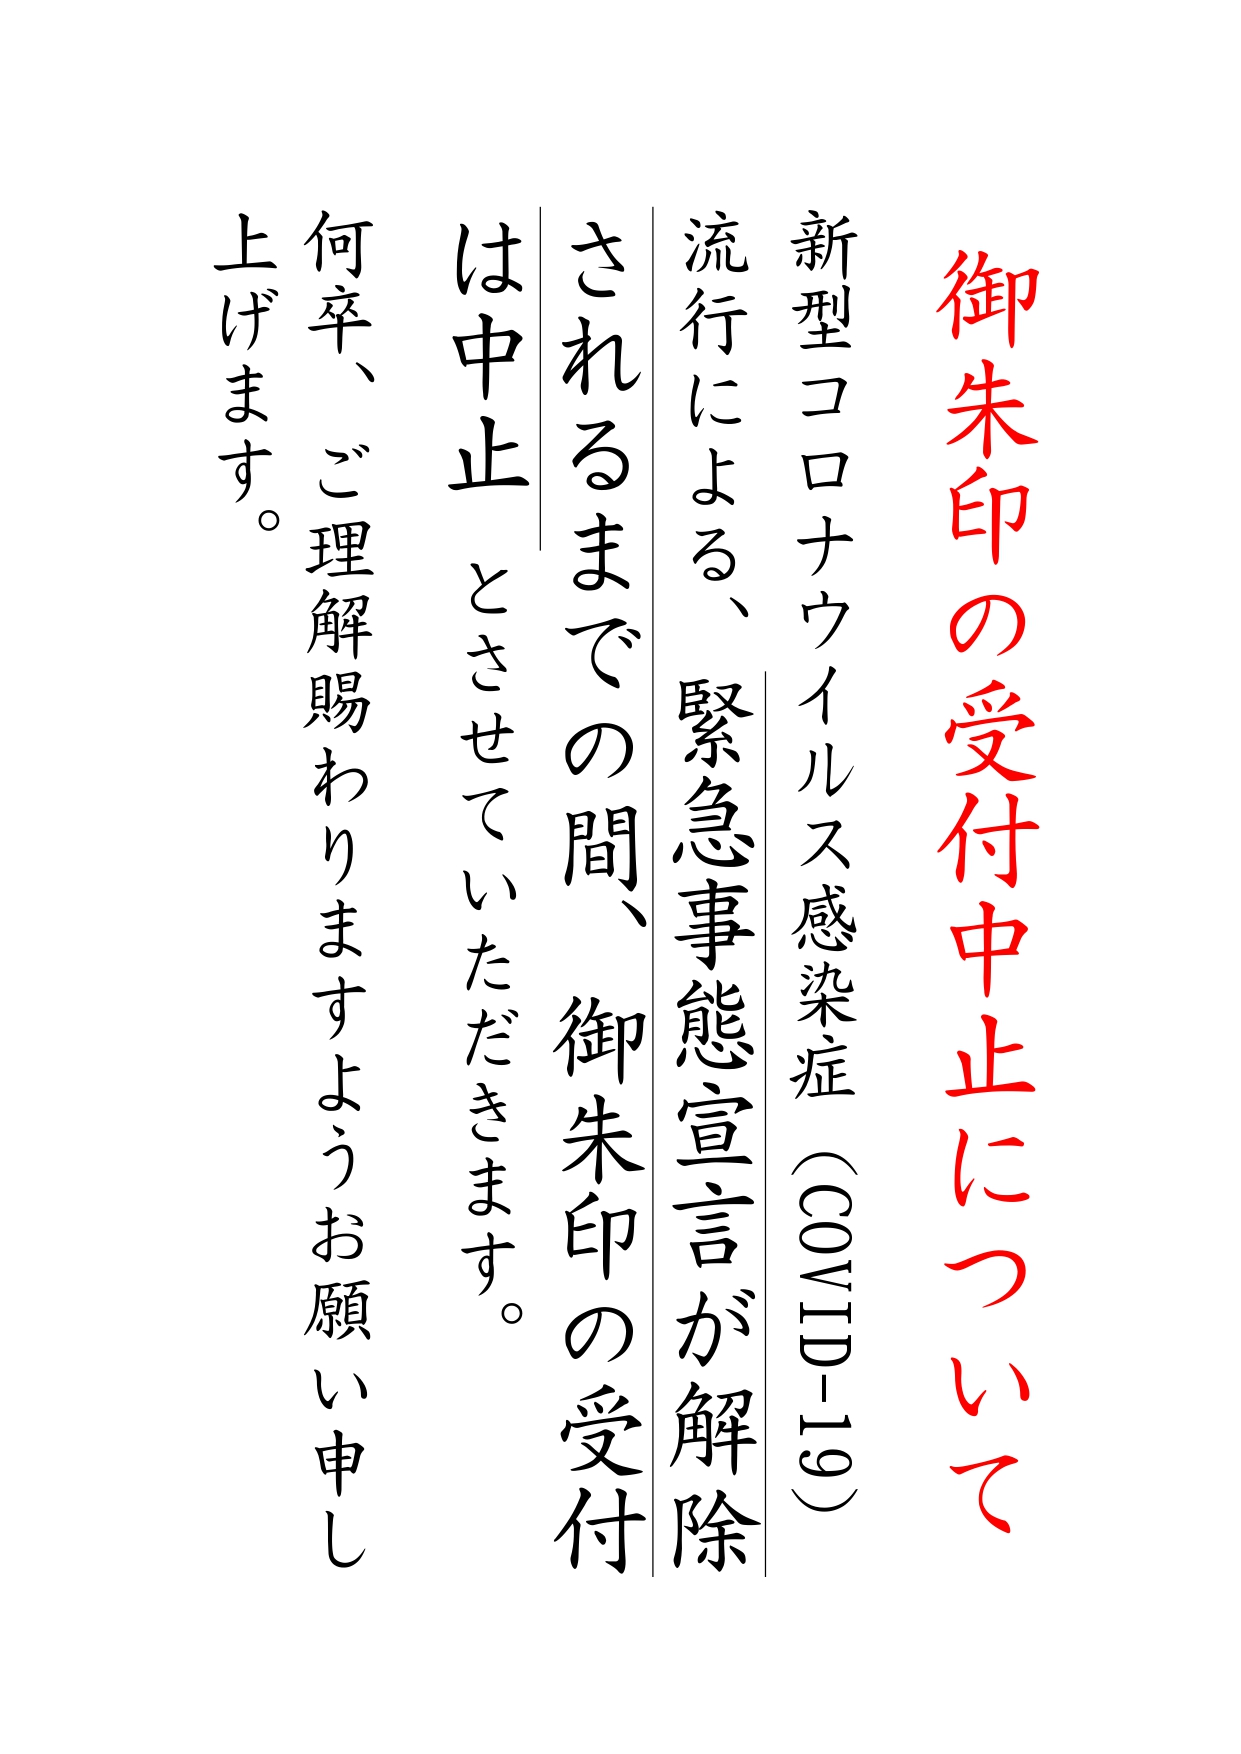 御朱印の受付中止について
新型コロナウイルス感染症（COVID-19）
流行による、緊急事態宣言が解除
されるまでの間、御朱印の受付
は中止とさせていただきます。
何卒、ご理解賜わりますようお願い申し
上げます。